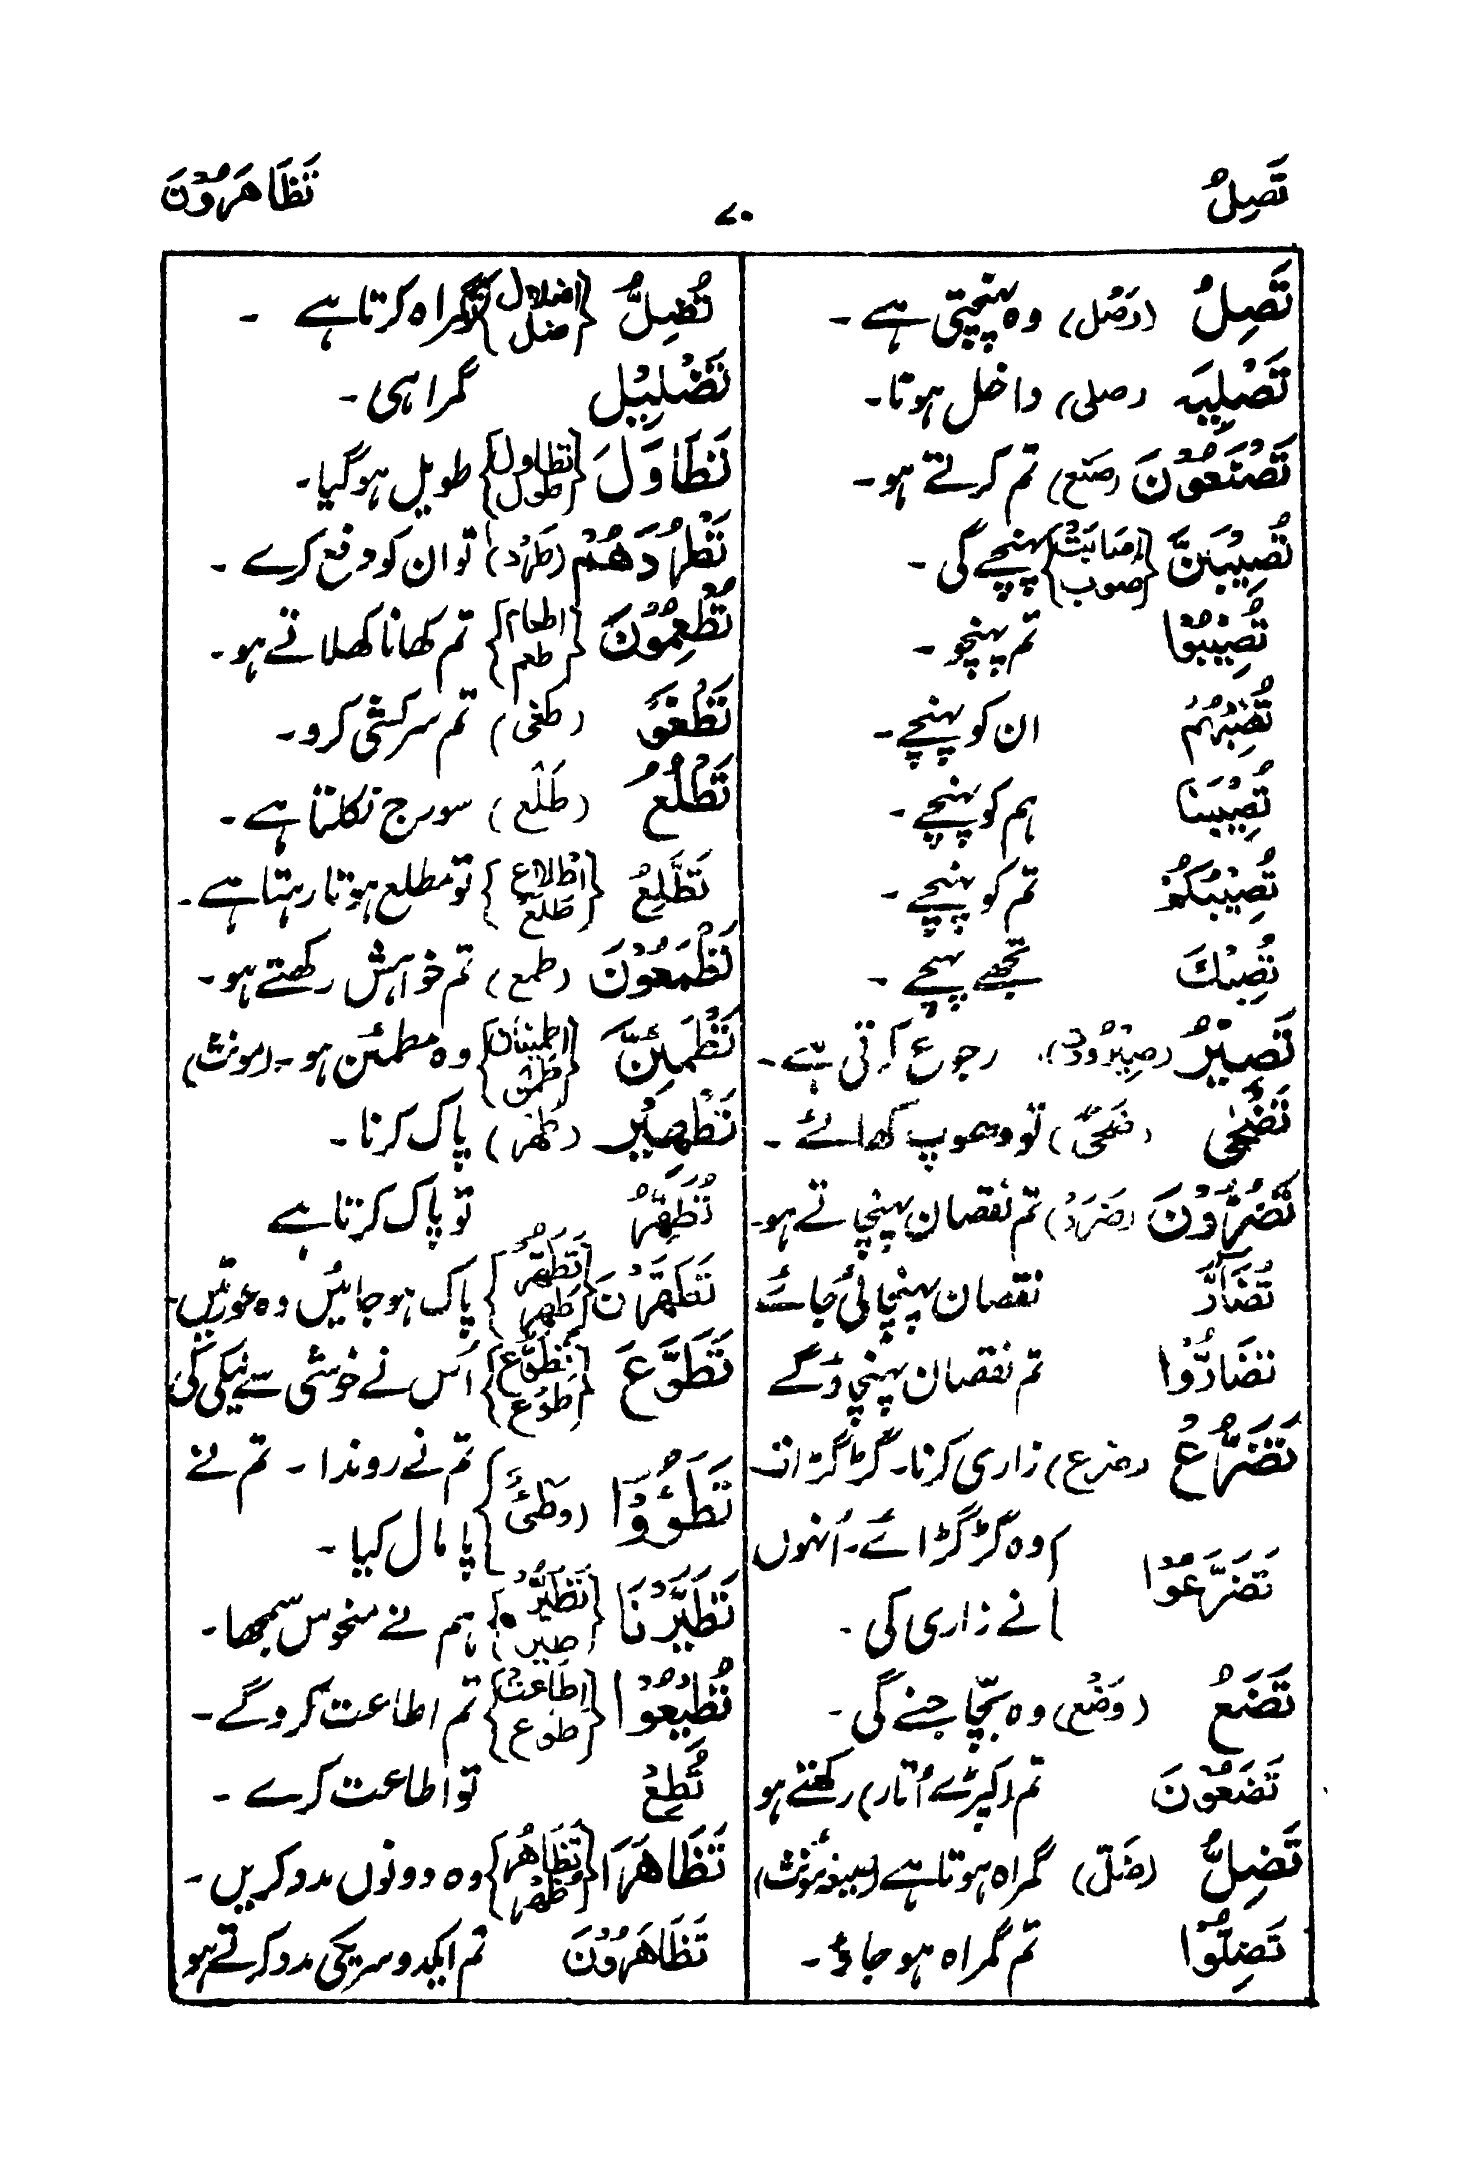 تَصِلُ
۷۰
تَظَاهَرُوْنَ
تَصِلُ (وَصْل) وہ پہنچتی ہے۔
تَصْلِیَہ (صلی) داخل ہوتا۔
تَصْنَعُوْنَ (صَنَع) تم کرتے ہو۔
تُصِیْبَنَّ {اِصَابَتْ صوب} پہنچے گی۔
تُصِیْبُوْا تم پہنچو۔
تُصِبْہُمْ ان کو پہنچے۔
تُصِیْبَنَا ہم کو پہنچے۔
تُصِیْبُکُمْ تم کو پہنچے۔
تُصِبْكَ تجھے پہنچے۔
تَصِیْرُ رجوع کرتی ہے۔
تَضْحٰی (ضَحْیٌ) تو دھوپ کھائے۔
تَضُرُّوْنَ (ضَرَرٌ) تم نقصان پہنچاتے ہو۔
تُضَآرَّ نقصان پہنچائی جائے
تُضَارُّوْا تم نقصان پہنچاؤ گے
تَضَرُّعُ (ضرع) زاری کرنا۔ گڑگڑانا
تَضَرَّعُوْا وہ گڑگڑائے۔ اُنہوں
نے زاری کی۔
تَضَعُ (وَضْع) وہ بچّا جنے گی۔
تَضَعُوْنَ تم (کپڑے اُتار) رکھتے ہو
تَضِلُّ (ضَلَّ) گمراہ ہوتا ہے (صیغہ مؤنث)
تَضِلُّوْا تم گمراہ ہو جاؤ۔
تُضِلُّ {اضلال ضلل} تو گمراہ کرتا ہے۔
تَضْلِیْل گمراہی۔
تَطَاوَلَ {تطاول طول} طویل ہو گیا۔
تَطْرُدَهُمْ (طَرْد) تو ان کو دفع کرے۔
تُطْعِمُوْنَ {اطعام طعم} تم کھانا کھلاتے ہو۔
تَطْغَوْ (طغی) تم سرکشی کرو۔
تَطْلُعُ (طَلْع) سورج نکلتا ہے۔
تَطَّلِعُ {اطلاع طلع} تو مطلع ہوتا رہتا ہے۔
تَطْمَعُوْنَ (طمع) تم خواہش رکھتے ہو۔
تَطْمَئِنَّ {اطمینان طمن} وہ مطمئن ہو۔ (مونث)
تَطْهِیْر (طُهْر) پاک کرنا۔
تُطَهِّرُ تو پاک کرتا ہے
تَطَهَّرْنَ {تَطَهُّر طهر} پاک ہو جائیں وہ عورتیں۔
تَطَوَّعَ {تَطَوُّع طَوْع} اُس نے خوشی سے نیکی کی
تَطَؤُوْا (وطئ) تم نے روندا۔ تم نے
پامال کیا۔
تَطَیَّرْنَا {تَطَیُّر طیر} ہم نے منحوس سمجھا۔
تُطِیْعُوْا {اطاعت طوع} تم اطاعت کرو گے۔
تُطِعْ تو اطاعت کرے۔
تَظَاهَرَا {تظاہر ظهر} وہ دونوں مدد کریں۔
تَظَاهَرُوْنَ تم ایکدوسریکی مدد کرتے ہو